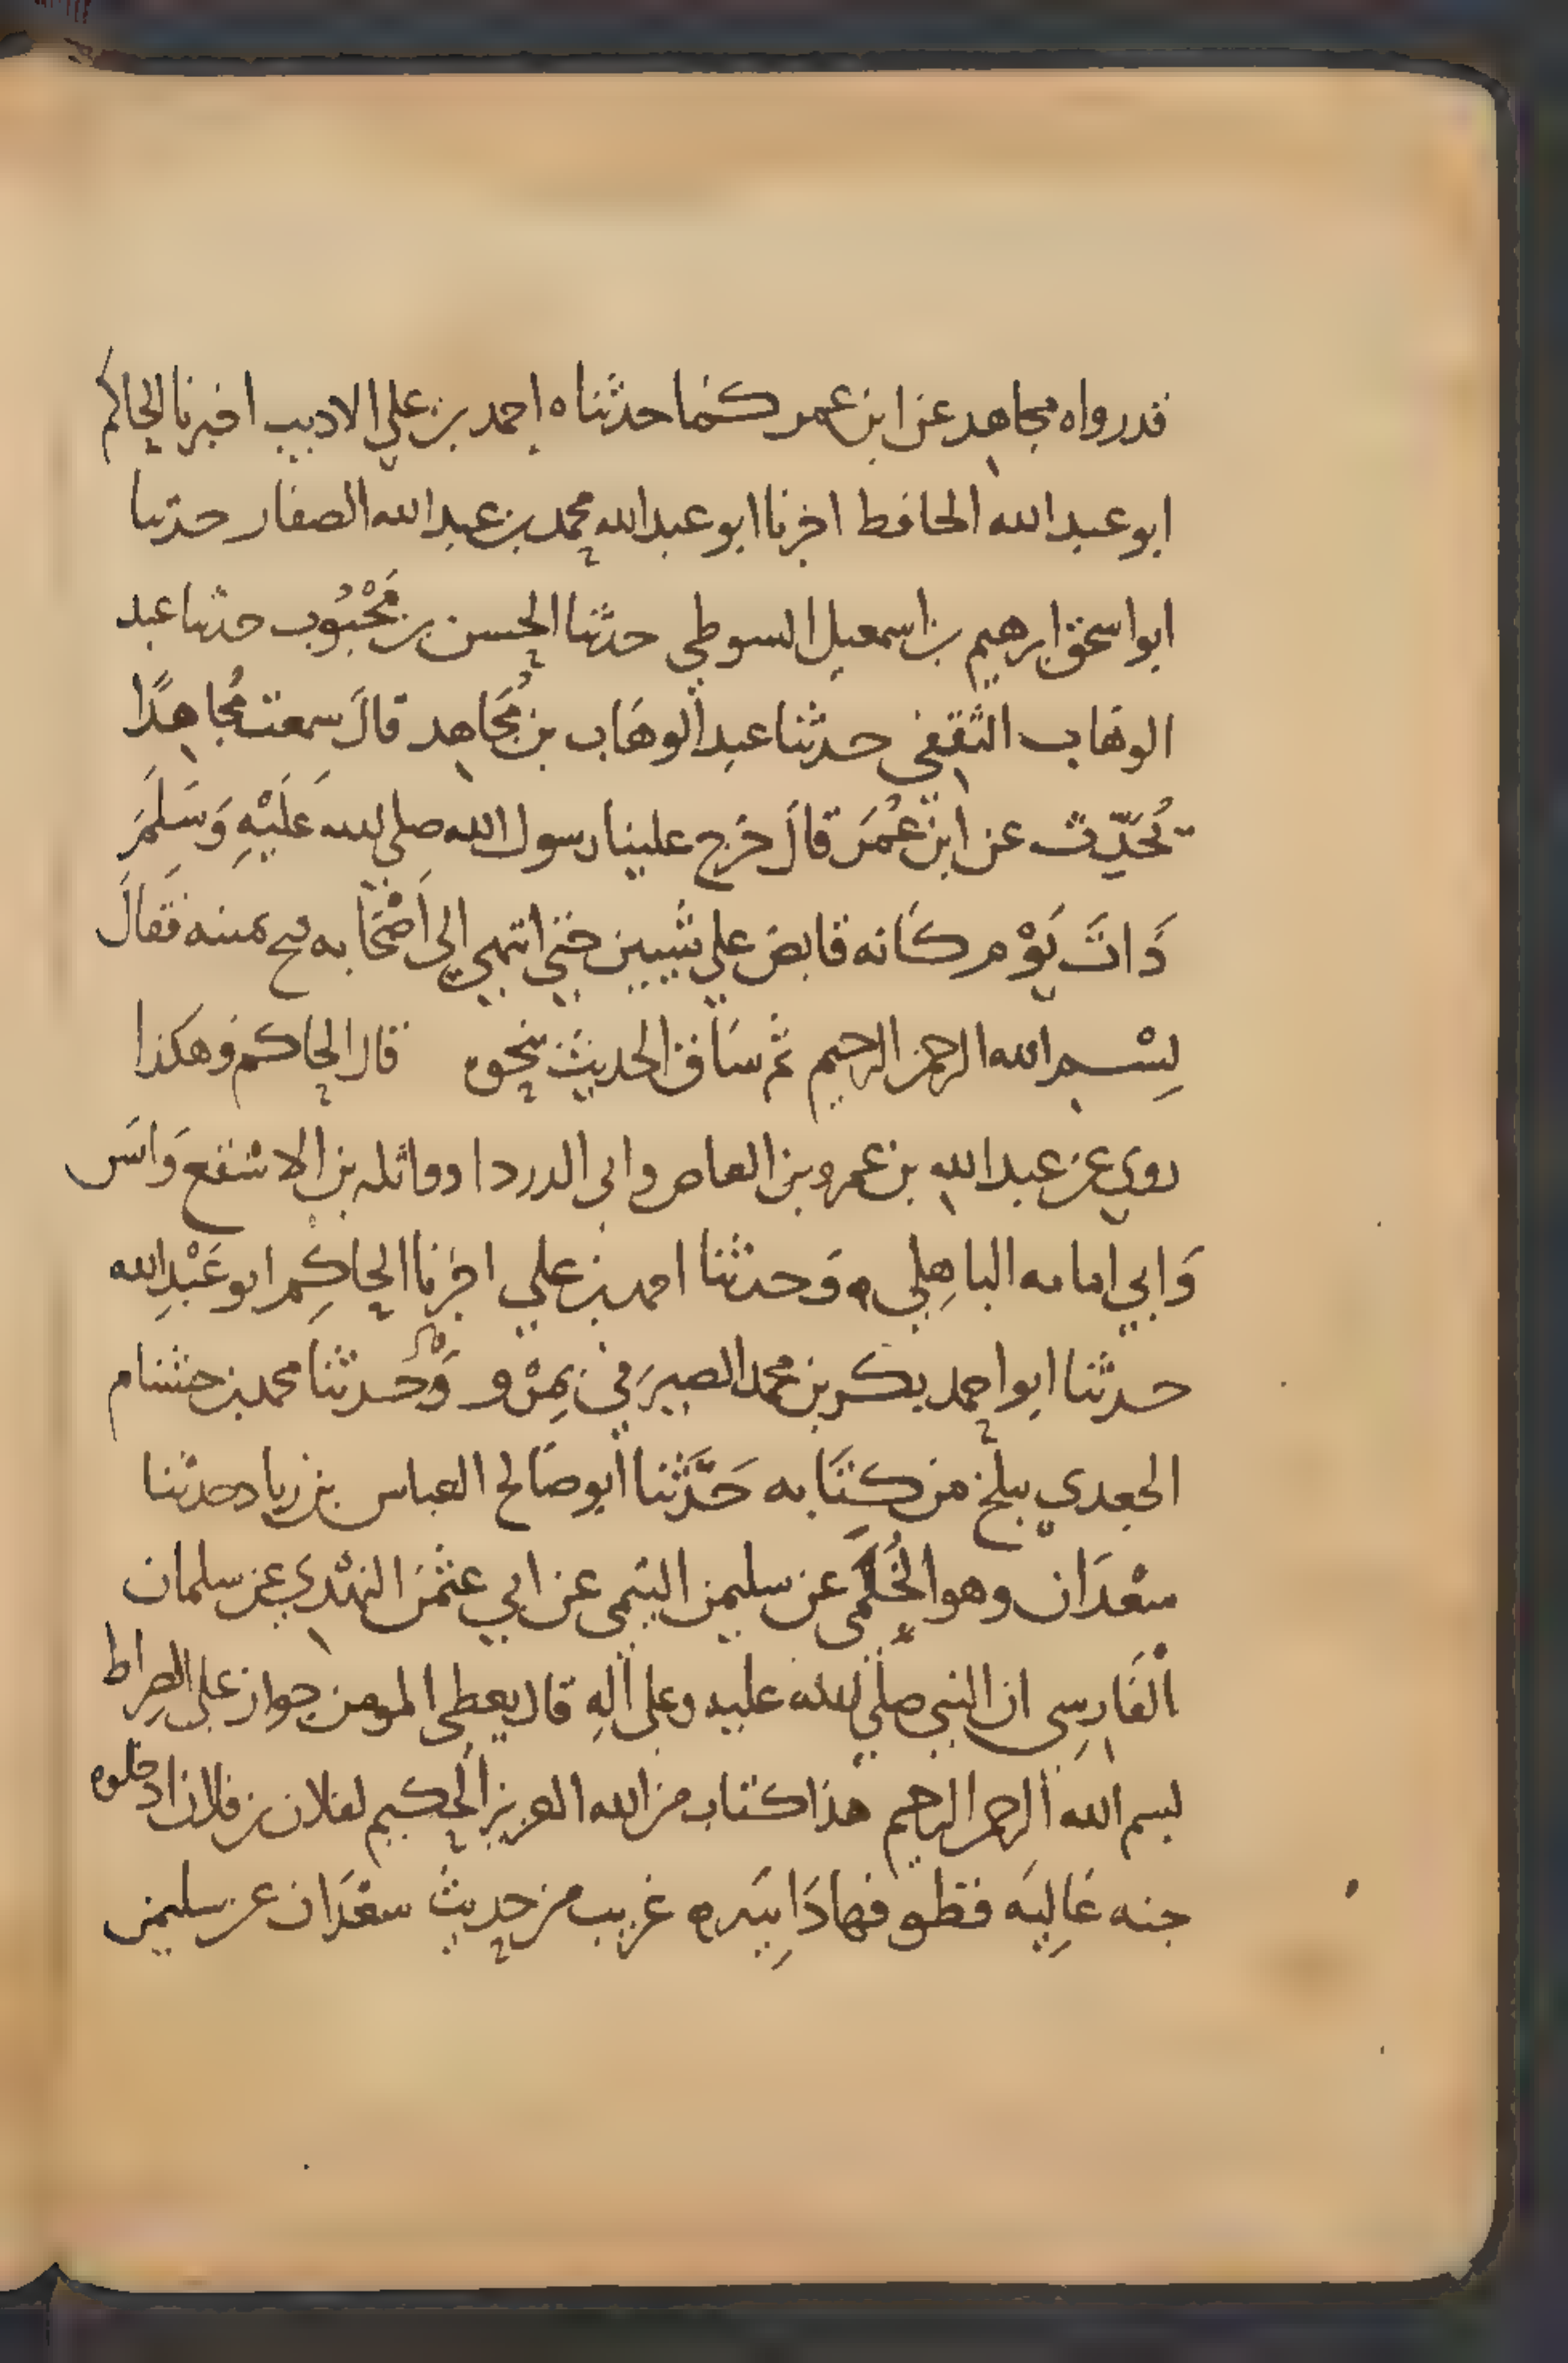 قد رواه مجاهد عن ابن عمر كما حدثناه احمد بن علي الاديب اخبرنا الحاكم
ابو عبد الله الحافط اخرنا ابو عبد الله محمد بن عبد الله الصفار حدثنا
ابو اسحق ابرهيم بن اسمعيل السوطي حدثنا الحسن بن مَحْبُوب حدثنا عبد
الوهاب الثقفي حدثنا عبد الوهَاب بن مُجَاهد قالَ سمعت مُجاهدًا
يُحَدِّث عن ابن عُمَرَ قالَ خرج علينا رسول الله صلى الله عَلَيْهِ وَسَلَّمَ
ذَاتَ يَوْم كَانه قابض على شيين حتي انتهي الي اَصْحَابه فتح يمينه فقَالَ
بِسْم الله الرحمن الرحيم ثم سَاق الحديث بنحوه قال الحاكم وهكذا
روي عن عبد الله بن عمرو بن العاص وابى الدردا وواثله بن الاسقع وَانَس
وَابي امامه الباهِلي ه وَحدثنا احمد بن علي اخرنا الحاكِم ابو عَبْدِ الله
حدثنا ابو احمد بكر بن محمد الصيرَفي بِمرْو وَحدثنا محمد بن حشنام
الجعدي ببلخ من كتَابه حَدَّثنا ابو صَالح العباس بن زياد حدثنا
سعْدَان وهو الحُلمى عن سليمن التيمى عن ابي عثمنَ النهْدي عن سلمان
الفَارسِي ان النبي صلي الله عليه وعلى الهِ قال يعطى المومن جواز على الصراط
بسم الله الرحمن الرحيم هذا كتاب من الله العزيز الحكيم لفلان بن فلان ادخلوه
جنه عَالِيَه قطوفها دَانِيَه ه غريب من حديث سعْدَان عن سليمن